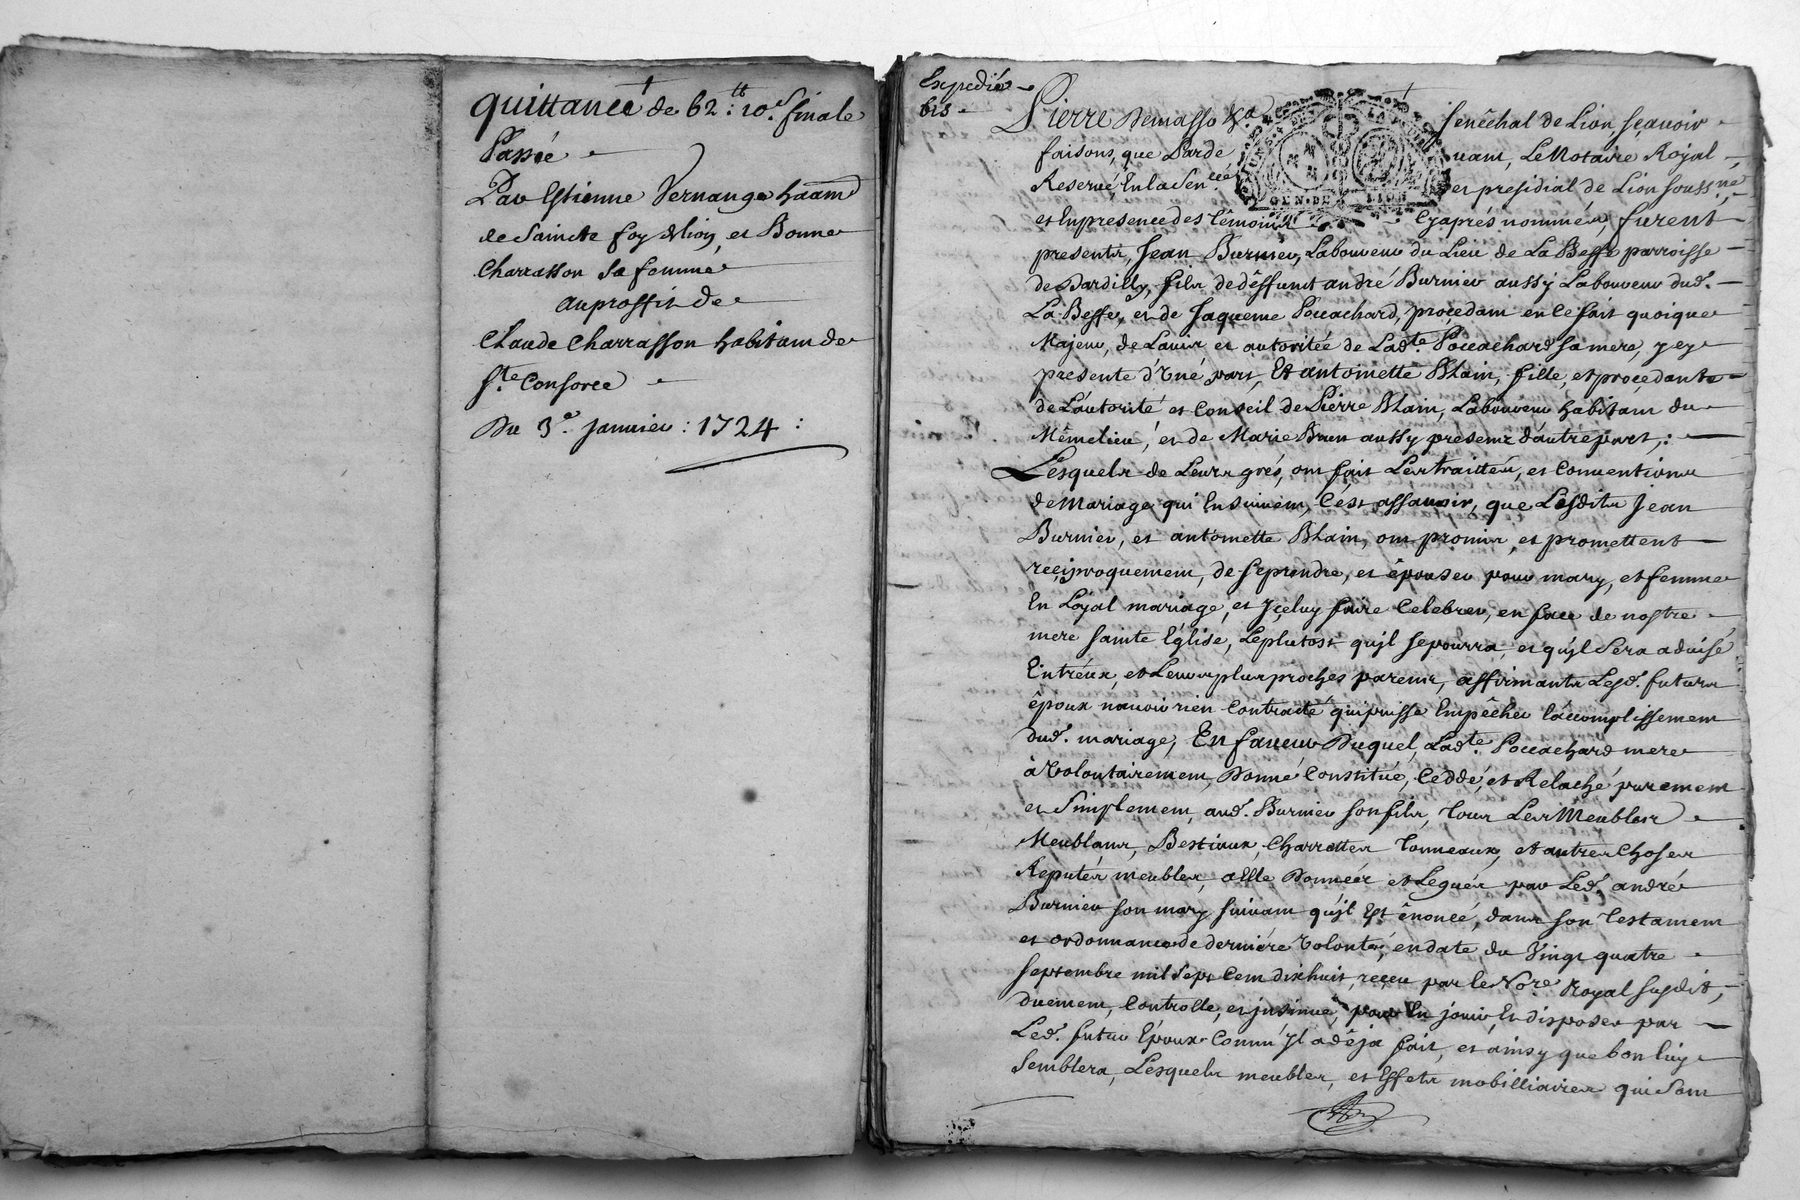 quittance de 62.tt 10.s finale
Passée
Par Estienne Vernange haant
de Saincte foy Lslion, et Bonne
Charrasson Sa femme
au proffit de
Claude Charrasson habitant de
Ste Consorce
Du 3e. janvier : 1724 :
Expedié
bis
Pierre Demasso &a Senêchal de Lion sçavoir
faisons, que Parde vant, Le Notaire Royal
Reservé En la Sen.cée et presidial de Lion soussné
et En presence des têmoins Cyaprés nommés, furent
presents, Jean Burnier, Laboureur du Lieu de La Beffe parroisse
de Dardilly, fils de dêffunct andré Burnier aussy Laboureur dud.
La Beffe, et de Jaqueme Poccachard, procedant en Ce fait quoique
Majeur, de Lavis et autoritée de Ladte. Poccachard sa mere, ycy
presente d'Une part, Et antoinette Blain, fille, et procedante
de L'autorité et Conseil de Pierre Blain, Laboureur habitant du
Mêmelieu, et de Marie Brun aussy presents d'autre part, :
Lesquels de Leurs grés, ont fait Les traittés, et Conventions
de Mariage qui Ensuivent, C'est assavoir, que Lesdits Jean
Burnier, et antoinette Blain, ont promis, et promettent
reçiproquement, de se prendre, et êpouser pour mary, et femme
En Loyal mariage, et Içeluy faire Celebrer, en face de nostre
mere sainte Eglise, Leplutost qu'jl sepourra, et qu'jl Sera advisé
Entréux, et Leurs plus proches parents, affirmants Lesd. futurs
êpoux n'avoir rien Contracté qui puisse Empêcher lâccomplissement
dud. mariage, En faveur Duquel, Ladte. Poccachard mere
à Volontairement, Donné Constitué, Ceddé, et Relaché purement
et Simplement, aud. Burnier son fils, Tous Les Meubles
Meublans, Bestiaux, Charrettes Tonneaux, et autres Choses
Reputés meubles, a Elle Donnéés et Leguéés par Led. andré
Burnier son mary suivant qu'jl Est ênoncé, dans son Testament
et ordonnance de derniére Volonté, en date du Vingt quatre
septembre mil Sept Cent dixhuit, reçeu par le Nore Royal susdit,
duement, Controllé, et jnsinué, pour En jouir, Et disposer par
Led. futur Epoux Comm' Il a dêja fait, et ainsy que bon luy
Semblera, Lesquels meubles, et Effets mobilliaires qui Sont